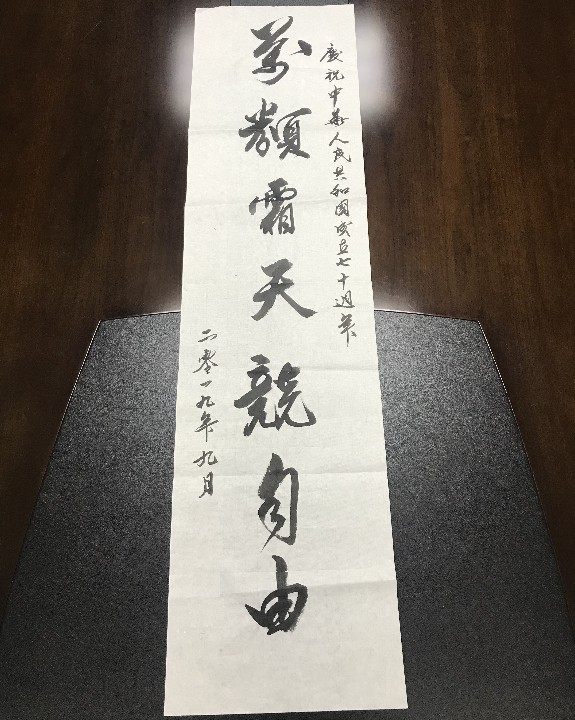 慶祝中華人民共和國成立七十週年
萬類霜天競自由
二零一九年九月